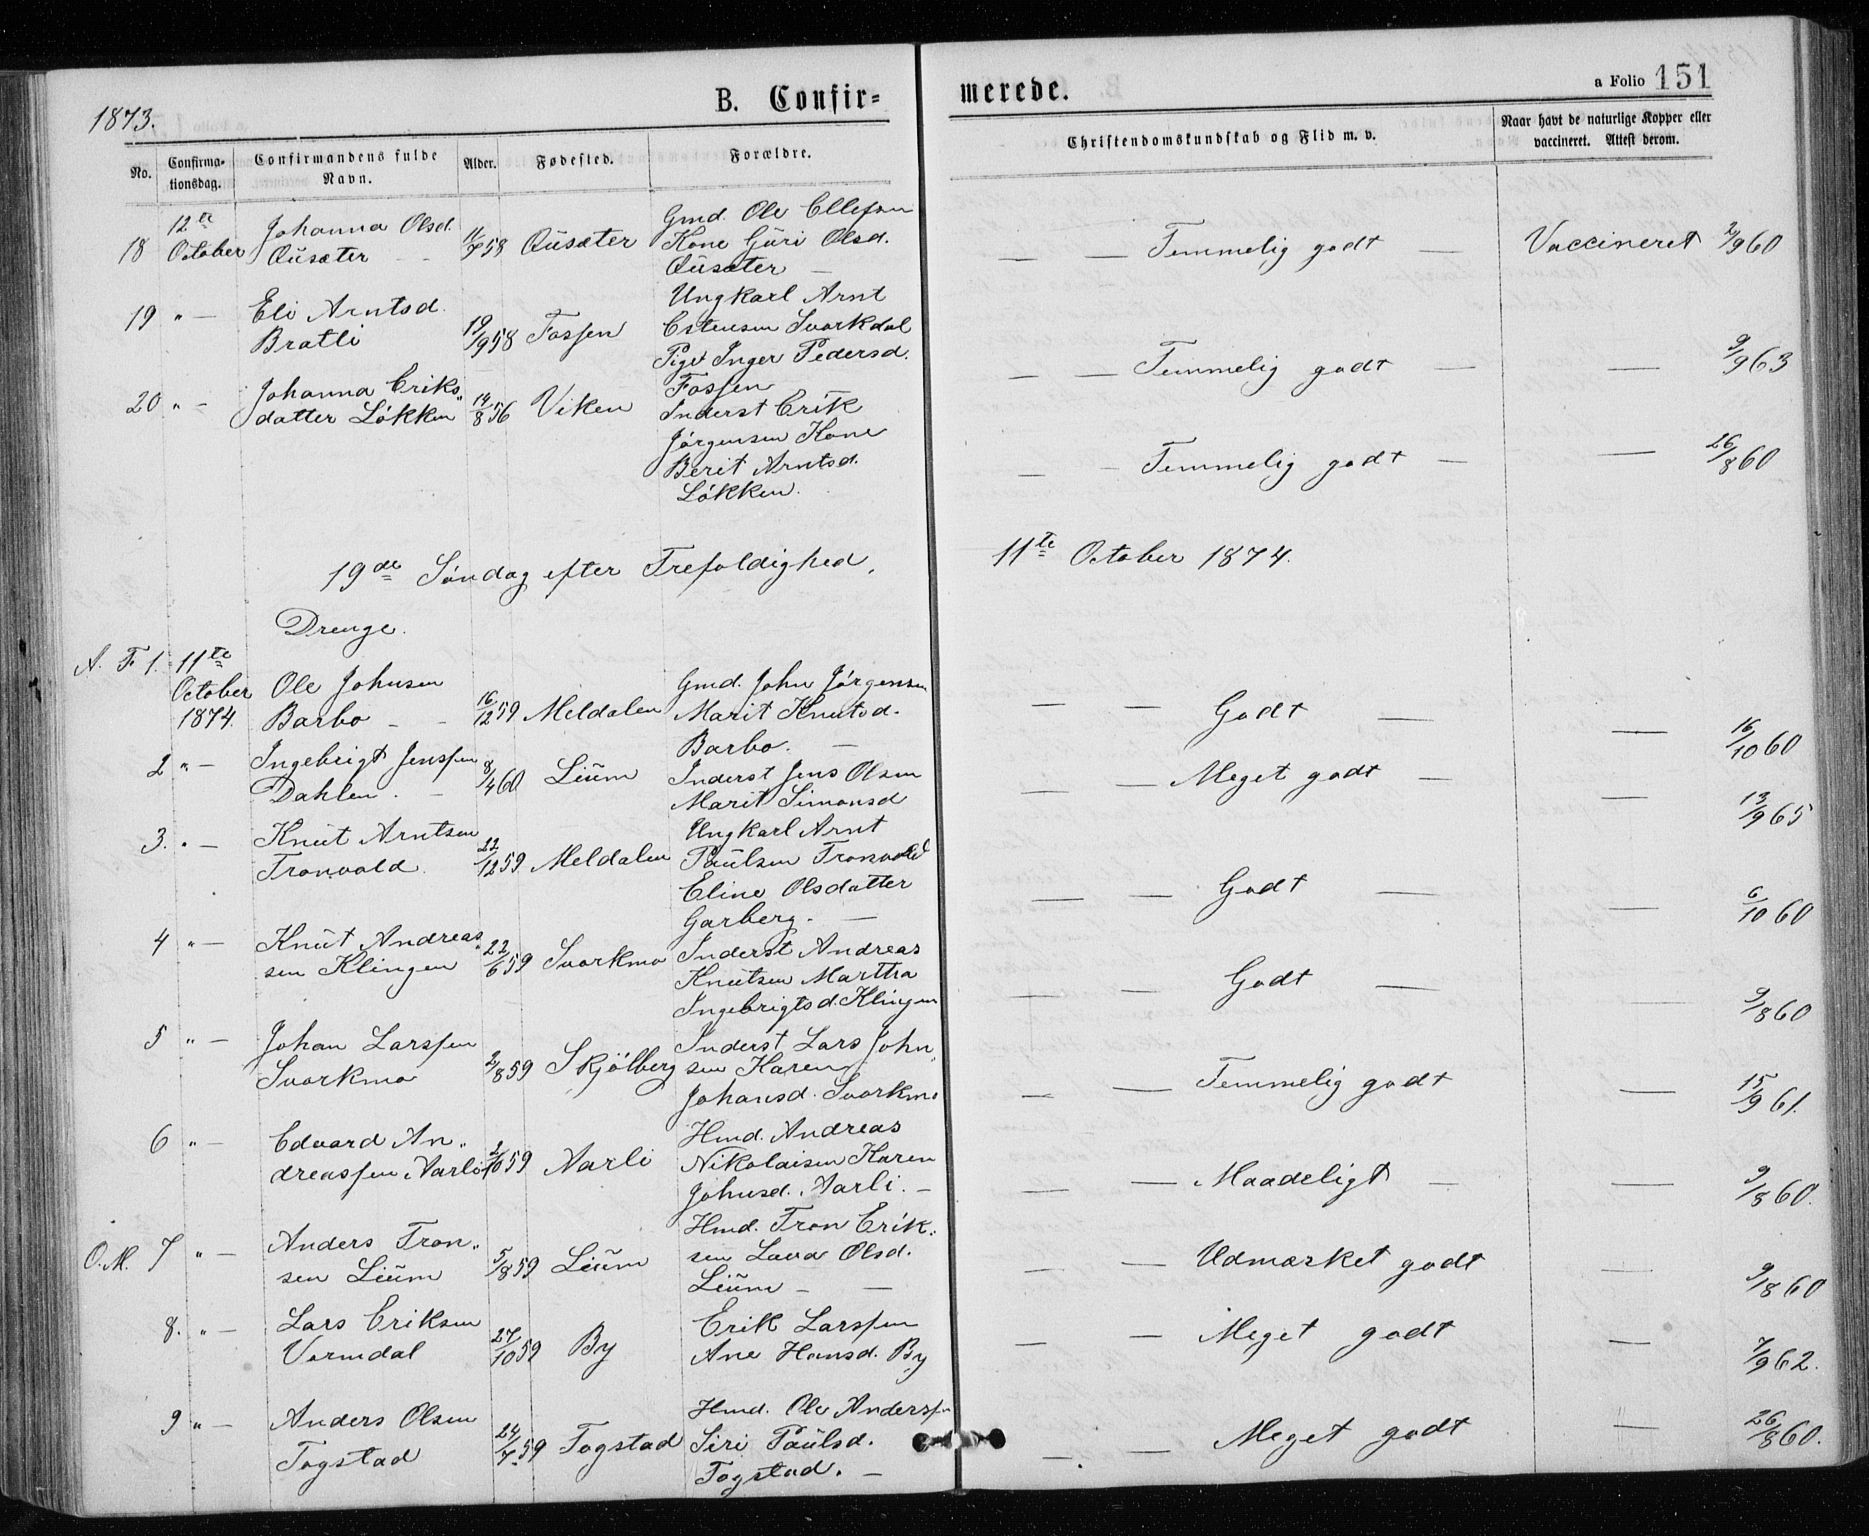 1873.
B. Confir-
merede.
a Folio 151
No.
Confirma-
tionsdag.
Confirmandens fulde
Navn.
Alder.
Fødested.
Forældre.
Christendomskundskab og Flid m. v.
Naar havt de naturlige Kopper eller
vaccineret. Attest derom.
18 12te October Johanna Olsd.
Qusæter — 58 Qusæter
Gmd. Ole Ellefsen
Kone Guri Olsd.
Qusæter —
— — Temmelig godt — Vaccineret 2/9 60
19 " — Eli Arntsd.
Bratli 19/9 58 Fossen
Ungkarl Arnt
Estensen Svorkdal
Pige Inger Pedersd.
Fossen
— — Temmelig godt — — 9/9 63
20 " — Johanna Eriks„
datter Løkken 14/8 56 Viken
Inderst Erik
Jørgensen Kone
Berit Arntsd.
Løkken.
— — Temmelig godt — — 26/8 60
19de Søndag efter Trefoldighed,
11te October 1874.
Drenge.
A. F 1. 11te
October
1874. Ole Johnsen
Barbo — — 16/12 59 Meldalen
Gmd. John Jørgensen
Marit Knutsd.
Barbo. —
— — Godt — — 16/10 60
2 " — Ingebrigt Jenssen
Dahlen. — 8/4 60 Lium
Inderst Jens Olsen
Marit Simonsd
— — Meget godt — — 13/9 65
3. " — Knut Arntsen
Tronvold. 22/12 59 Meldalen
Ungkarl Arnt
Paulsen Tronvold
Eline Olsdatter
Garberg. —
— — Godt — — 6/10 60
4 " — Knut Andreas„
sen Klingen 22/6 59 Svorkmo
Inderst Andreas
Knutsen Martha
Ingebrigtsd. Klingen
— — Godt — — 9/8 60
5 " — Johan Larssen
Svorkmo 2/8 59 Skjølberg
Inderst Lars John„
sen Karen
Johansd. Svorkmo
— — Temmelig godt — 15/9 61.
6 " — Edvard An„
dreassen Aarli 2/10 59 Aarli
Hmd. Andreas
Nikolaisen Karen
Johnsd. Aarli. —
— — Maadeligt — — 9/8 60.
O. M. 7 " — Anders Tron„
sen Lium 5/8 59 Lium
Hmd. Tron Erik„
sen Lava Olsd.
Lium — —
— — Udmærket godt — 9/8 60
8. " — Lars Eriksen
Vormdal 27/10 59 By
Erik Larssen
Ane Hansd. By
— — Meget godt — 7/9 62.
9 " — Anders Olsen
Togstad 24/7 59 Togstad
Hmd. Ole Anderssen
Siri Paulsd.
Togstad. —
— — Meget godt — 26/8 60.